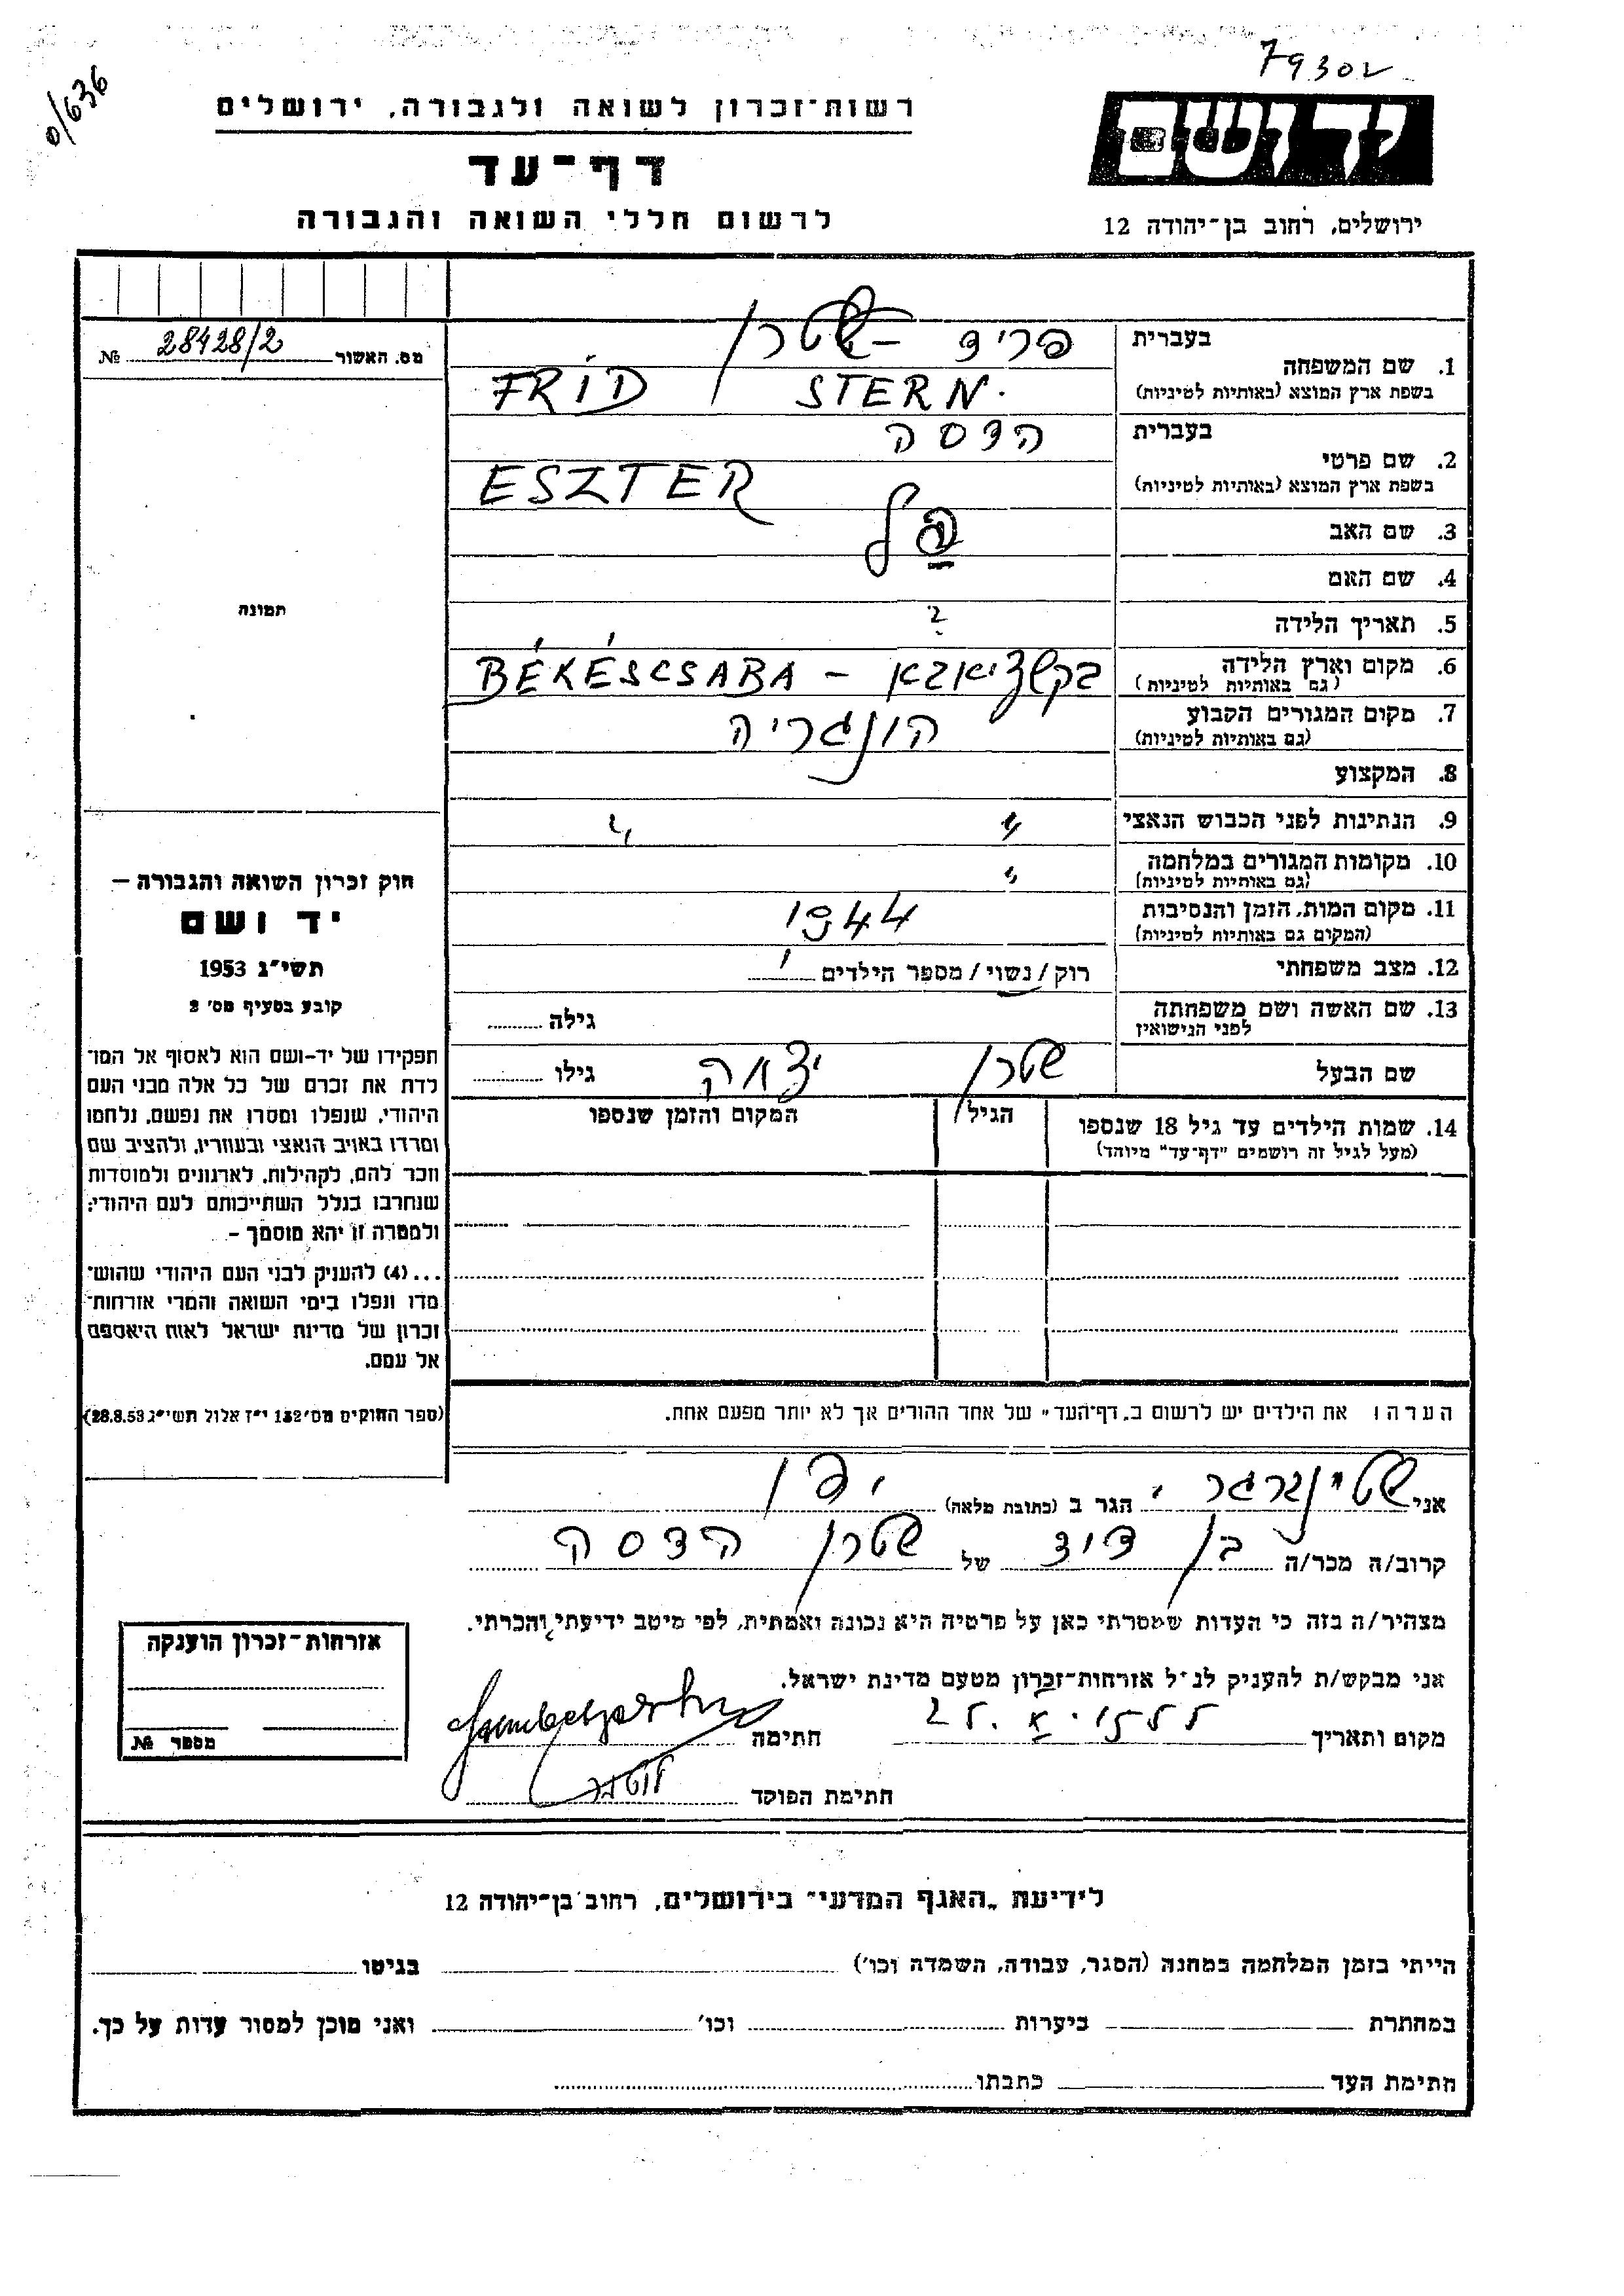 79302
0/636
רשות־זכרון לשואה ולגבורה, ירושלים
יד ושם
דף־עד
לרשום חללי השואה והגבורה
ירושלים, רחוב בן־יהודה 12
בעברית פריד - שטרן
1. שם המשפחה
בשפת ארץ המוצא (באותיות לטיניות) FRID STERN.
מס. האשור 28428/2 №
בעברית הדסה
2. שם פרטי
בשפת ארץ המוצא (באותיות לטיניות) ESZTER
3. שם האב
4. שם האם
תמונה
5. תאריך הלידה ?
6. מקום וארץ הלידה
(גם באותיות לטיניות) BÉKÉSCSABA -
7. מקום המגורים הקבוע הונגריה
(גם באותיות לטיניות)
8. המקצוע
9. הנתינות לפני הכבוש הנאצי " "
10. מקומות המגורים במלחמה "
(גם באותיות לטיניות)
11. מקום המות, הזמן והנסיבות 1944
(המקום גם באותיות לטיניות)
12. מצב משפחתי רוק/נשוי/מספר הילדים 1
13. שם האשה ושם משפחתה גילה
לפני הנישואין
שם הבעל שטרן גילו
14. שמות הילדים עד גיל 18 שנספו הגיל המקום והזמן שנספו
(מעל לגיל זה רושמים "דף־עד" מיוחד)
הערה: את הילדים יש לרשום ב„דף־העד" של אחד ההורים אך לא יותר מפעם אחת.
חוק זכרון השואה והגבורה –
יד ושם
תשי״ג 1953
קובע בסעיף מס׳ 2
תפקידו של יד-ושם הוא לאסוף אל המו־
לדת את זכרם של כל אלה מבני העם
היהודי, שנפלו ומסרו את נפשם, נלחמו
ומרדו באויב הנאצי ובעוזריו, ולהציב שם
וזכר להם, לקהילות, לארגונים ולמוסדות
שנחרבו בגלל השתייכותם לעם היהודי;
ולמטרה זו יהא מוסמך –
...(4) להעניק לבני העם היהודי שהוש־
מדו ונפלו בימי השואה והמרי אזרחות־
זכרון של מדינת ישראל לאות היאספם
אל עמם.
(ספר החוקים מס׳ 132 י״ז אלול תשי״ג 28.8.53)
אני שטינברגר י הגר ב (כתובת מלאה)
קרוב/ה מכר/ה בן דוד של שטרן הדסה
מצהיר/ה בזה כי העדות שמסרתי כאן על פרטיה היא נכונה ואמתית, לפי מיטב ידיעתי והכרתי.
אני מבקש/ת להעניק לנ״ל אזרחות־זכרון מטעם מדינת ישראל.
מקום ותאריך חתימה
חתימת הפוקד
אזרחות־זכרון הוענקה
מספר №
לידיעת „האגף המדעי" בירושלים, רחוב בן־יהודה 12
הייתי בזמן המלחמה במחנה (הסגר, עבודה, השמדה וכו׳) בגיטו
במחתרת ביערות וכו׳ ואני מוכן למסור עדות על כך.
חתימת העד כתבתו